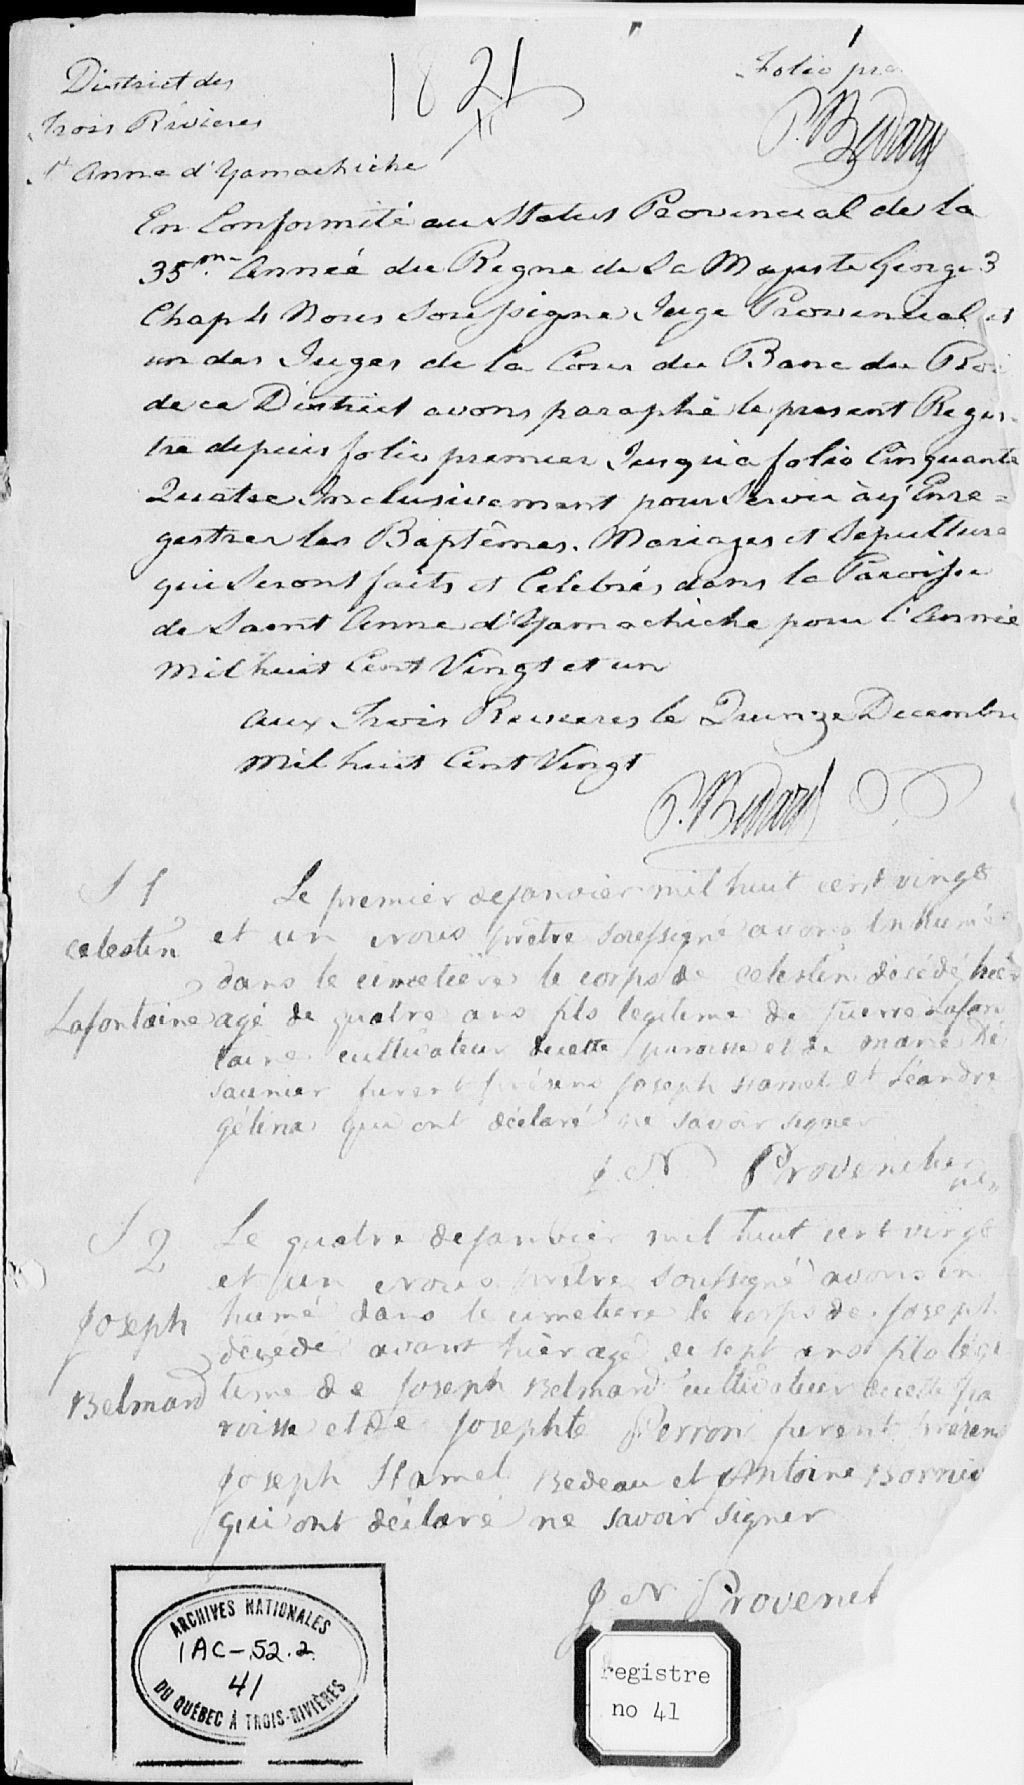 1821
Folio pre
P. Bedard
District des
Trois Rivieres
St Anne d'Yamachiche
En Conformité au Status Provincial de la
35me Année du Regne de Sa Majesté George 3
Chap 4 Nous Soussigne Juge Provincial et
un des Juges de la Cour du Banc du Roi
de ce District avons paraphé le present Regis-
tre depuis folio premier Jusqu'a folio Cinquante
Quatre Inclusivement pour Servir à y Enre=
gestrer les Baptêmes. Mariages et Sepulture
qui Seront faits et Celebrés dans la Paroisse
de Saint Anne d'Yamachiche pour l'Année
Mil huit Cent Vingt et un
Aux Trois Rivieres le Quinze Decembre
Mil huit Cent Vingt
P. Bedard
S 1
Celestin
Lafontaine
Le premier de janvier mil huit cent vingt
et un Nous prêtre soussigné avons Inhumé
dans le cimetière le corps de celestin décédé hier
agé de quatre ans fils legitime de pierre Lafon
taine cultivateur de cette paroisse et de marie Dé
saunier furent présens Joseph Hamel et Léandre
Gélina qui ont déclaré ne savoir signer
J. N. Provencher
S 2
Joseph
Belmard
Le quatre de janvier mil huit cent vingt
et un Nous prêtre soussigné avons in
humé dans le cimetiere le corps de Joseph
décédé avant hièr agé de sept ans fils légi
time de Joseph Belmard cultivateur de cette pa
roisse et de Josephte Perron furent présens
Joseph Hamel Bedeau et Antoine
qui ont déclaré ne savoir signer
J. N. Provenc
ARCHIVES NATIONALES
1AC-52.2
41
DU QUÉBEC À TROIS-RIVIÈRES
registre
no 41